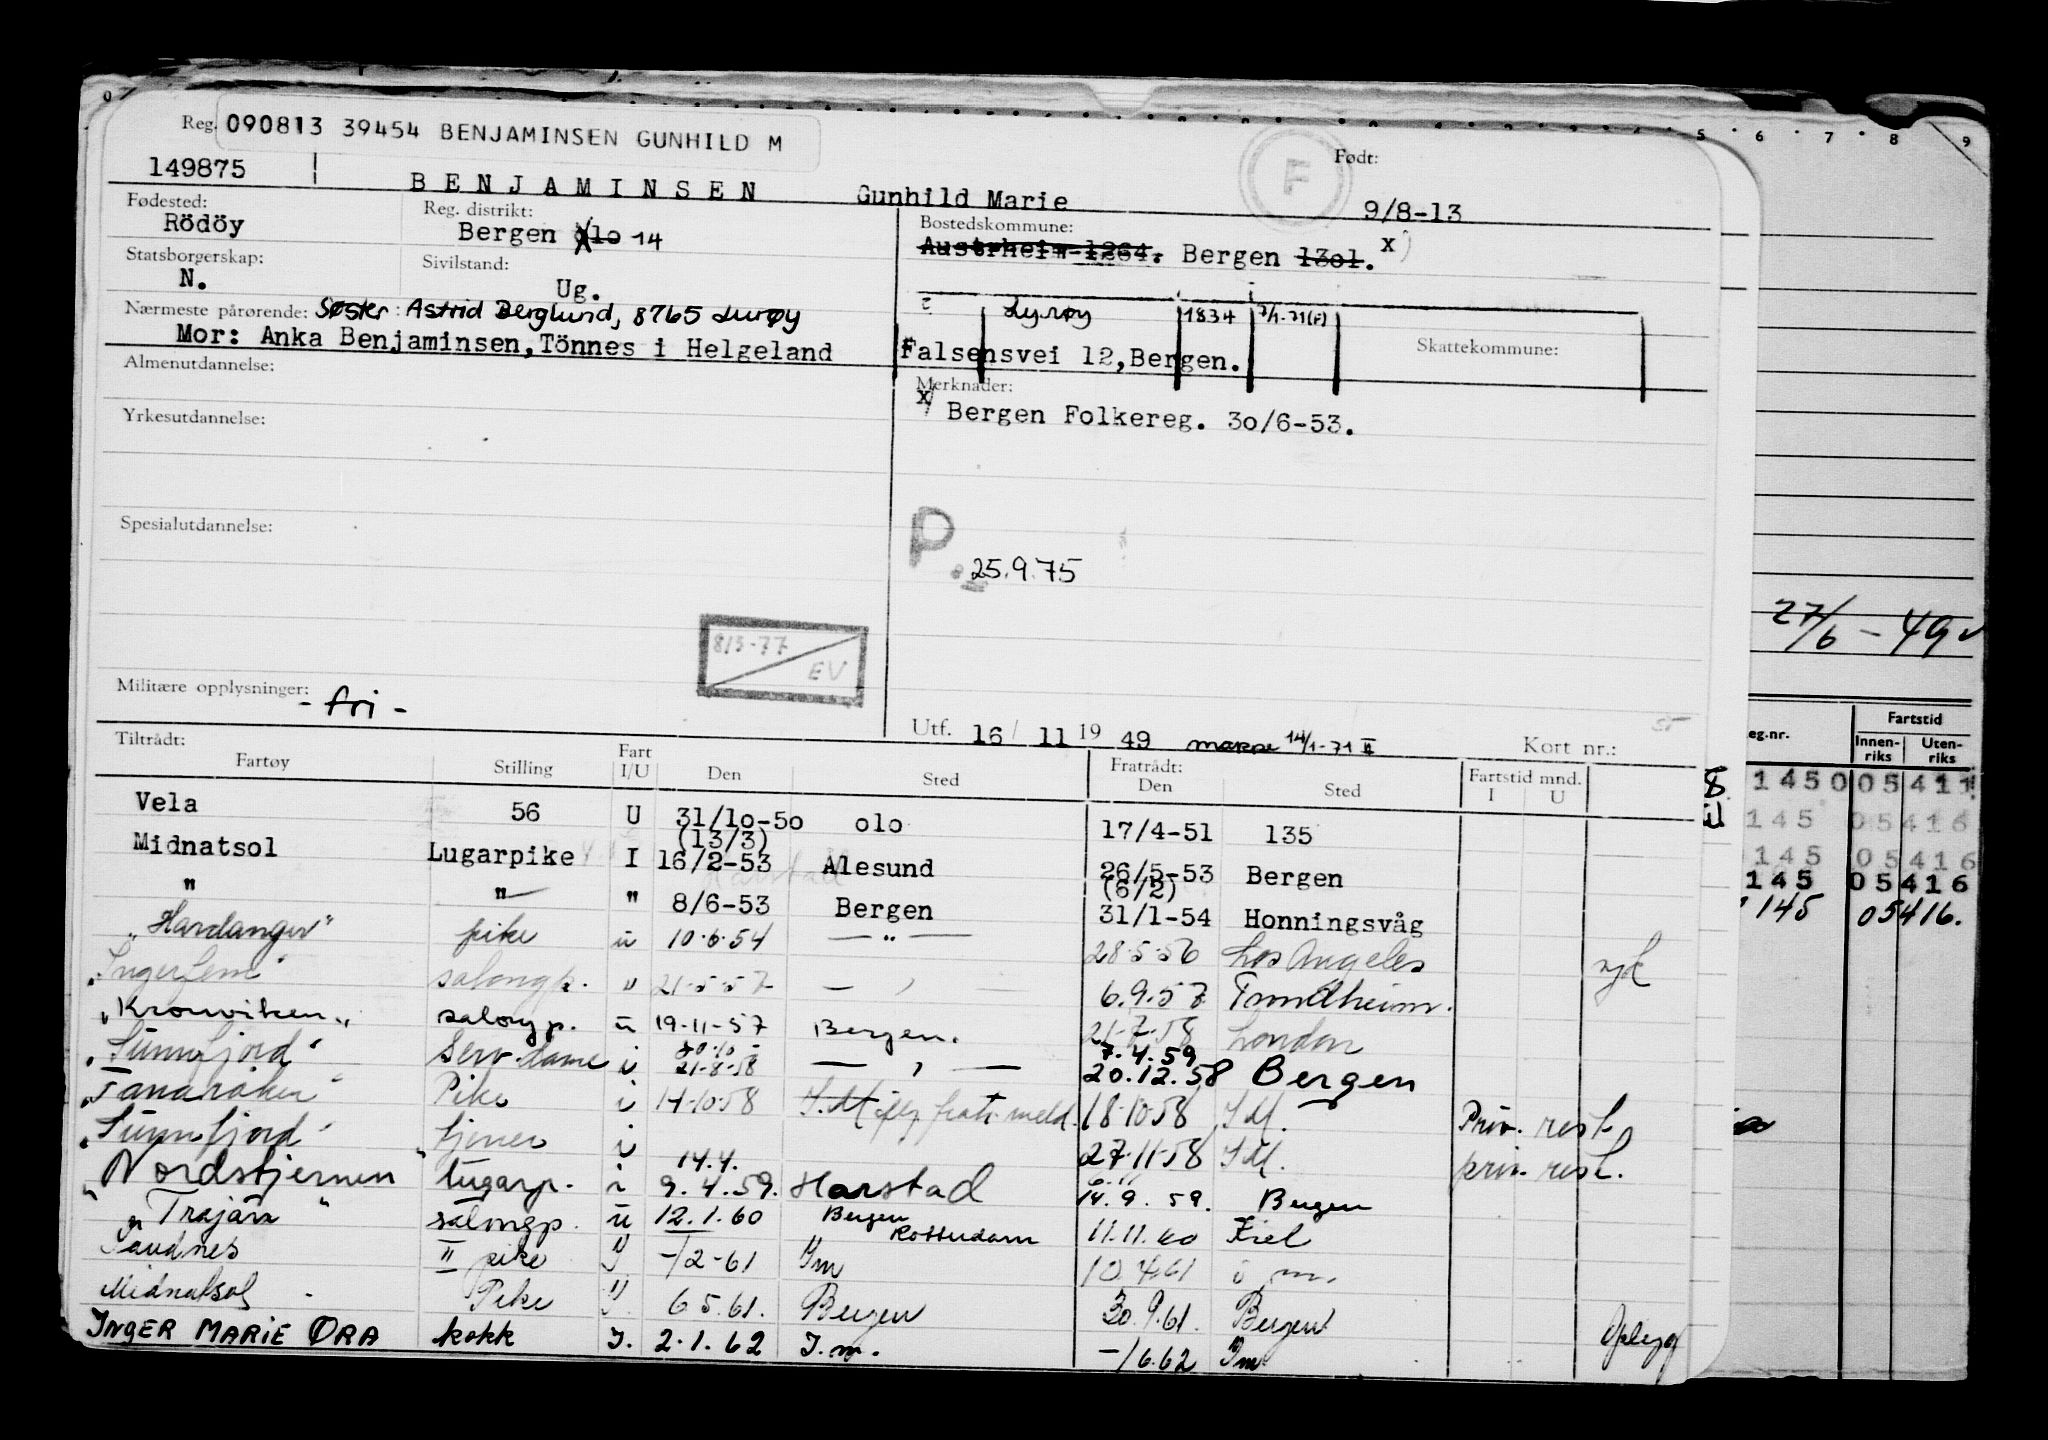 0 5 6 7 8 9
Reg. 090813 39454 BENJAMINSEN GUNHILD M
149875 BENJAMINSEN Gunhild Marie F Født: 9/8-13
Fødested: Rödöy Reg. distrikt: Bergen olo 14 Bostedskommune: Austrheim-1264. Bergen 1301. x)
Statsborgerskap: N. Sivilstand: Ug.
Nærmeste pårørende: Søster: Astrid Berglund, 8765 Lurøy
Lurøy 1834 7/1-71(F)
Mor: Anka Benjaminsen, Tönnes i Helgeland Falsensvei 12, Bergen. Skattekommune:
Almenutdannelse: Merknader:
x/ Bergen Folkereg. 30/6-53.
Yrkesutdannelse:
Spesialutdannelse: P.
25.9.75
27/6-49
8/3-77 EV
Militære opplysninger: - fri -
Utf. 16/ 11 19 49 14/1-71 Kort nr.:
Tiltrådt: Fratrådt: Fartstid mnd.
Fartøy Stilling Fart I/U Den Sted Den Sted I U
eg.nr. Fartstid Innen-riks Uten-riks
Vela 56 U 31/10-50 olo 17/4-51 135
(13/3)
Midnatsol Lugarpike I 16/2-53 Alesund 26/5-53 Bergen
(6/2)
" " " 8/6-53 Bergen 31/1-54 Honningsvåg
"Hardanger" pike u 10.6.54 — " — 28.5.56 Los Angeles
"Ingerfem" salongp. u 21-5-57 — " — 6.9.57 Trondheim.
"Kronviken" salongp. u 19-11-57 Bergen. 21-7-58 London
7.4.59
"Sunnfjord" Serv.dame i 21-8-58 — " — 20.12.58 Bergen
"Tanaråker" Pike i 14-10-58 I.M iflg fratr. meld. 18-10-58 I M. Priv. rest.
"Sunnfjord" i 27-11-58 I M. priv. rest.
14.4.
"Nordstjernen" lugarp. i 9.4.59. Harstad 14.9.59. Bergen
"Trajan" salongp. u 12.1.60 Bergen Rotterdam 11.11.60 Kiel
"Sandnes II pike I -/2-61 Im 10.4.61 i m.
Midnatsol Pike I 6.5.61. Bergen 30.9.61. Bergen
INGER MARIE ØRA kokk I. 2.1.62 I.m. -/6.62 Im Opplegg
1450 05411
145 05416
145 05416
145 05416
145 05416.